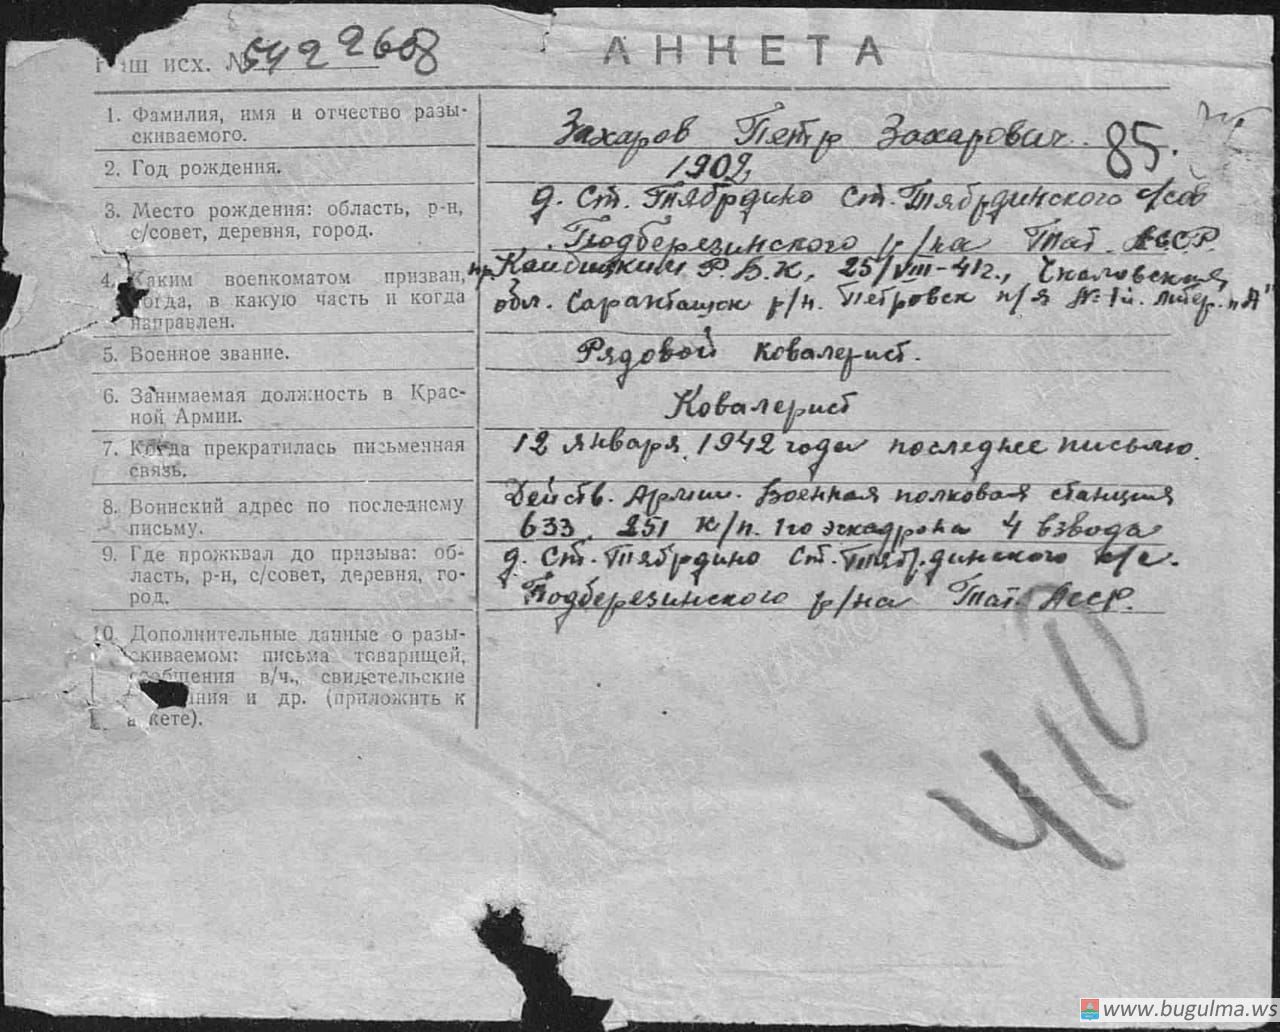 Наш исх. № 5422608
АНКЕТА
1. Фамилия, имя и отчество разы-
скиваемого.
Захаров Петр Захарович.
85.
2. Год рождения.
1902
3. Место рождения: область, р-н,
с/совет, деревня, город.
д. Ст. Тябрдино Ст. Тябрдинского с/сов
Подберезинского р/на Тат. АССР.
4. Каким военкоматом призван,
когда, в какую часть и когда
направлен.
Кайбицким Р.В.К, 25/VIII-41г., Чкаловская
обл. Саракташск р/н. Петровск п/я №1й. литер. "А"
5. Военное звание.
Рядовой Ковалерист.
6. Занимаемая должность в Крас-
ной Армии.
Ковалерист
7. Когда прекратилась письменная
связь.
12 января 1942 года последнее письмо.
8. Воинский адрес по последнему
письму.
Действ. Армии. Военная полковая станция
633 251 к/п. 1го эскадрона 4 взвода
9. Где проживал до призыва: об-
ласть, р-н, с/совет, деревня, го-
род.
д. Ст. Тябрдино Ст. Тябрдинского с/с.
Подберезинского р/на Тат. АССР.
10. Дополнительные данные о разы-
скиваемом: письма товарищей,
сообщения в/ч., свидетельские
и др. (приложить к
анкете).
410
www.bugulma.ws